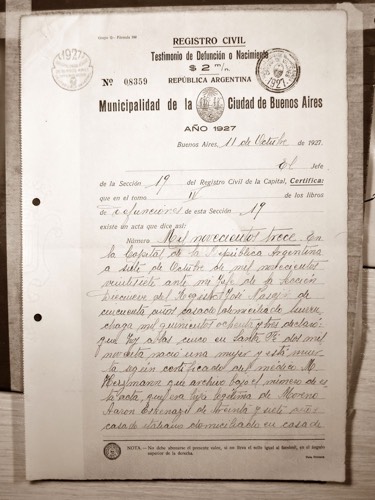 REGISTRO CIVIL
Testimonio de Defunción o Nacimiento
$ 2 m/n.
1927
1927
Nº 08359
REPÚBLICA ARGENTINA
Municipalidad de la Ciudad de Buenos Aires
AÑO 1927
Buenos Aires, 11 de Octubre de 1927.
El Jefe
de la Sección 19 del Registro Civil de la Capital, Certifica:
que en el tomo de los libros
de defunciones de esta Sección 19
existe un acta que dice así:
Número Mil novecientos trece. En
la Capital de la República Argentina
a siete de Octubre de mil novecientos
veintisiete ante mi Jefe de la Sección
Diecinueve del Registro José
cincuenta años casado domiciliado
mil quinientos ochenta y tres declaró:
que hoy a las cinco en Santa Fé dos mil
noventa nació una mujer y está muer
ta según certificado del médico M.
que archivo bajo el número de es
ta acta, que era hija legítima de
Aaron de treinta y siete años
casado italiano domiciliado en casa de
NOTA. - No debe abonarse el presente valor, si no lleva el sello igual al laminal, en el ángulo
superior de la derecha.